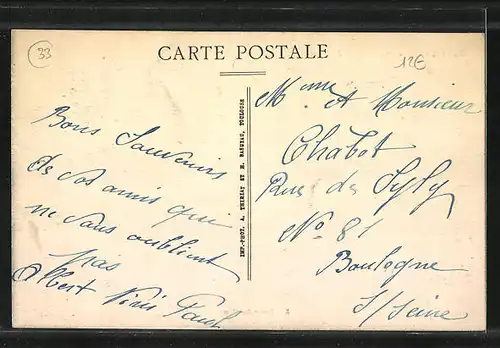 33
CARTE POSTALE
12€
Bons Souvenirs
de vos amis qui
ne vous oublient
pas
Albert Paul
IMP.-PHOT. A. THIRIAT ET M. BASUYAU, TOULOUSE
Mme et Monsieur
Chabot
Rue de
No 81
Boulogne
S/Seine